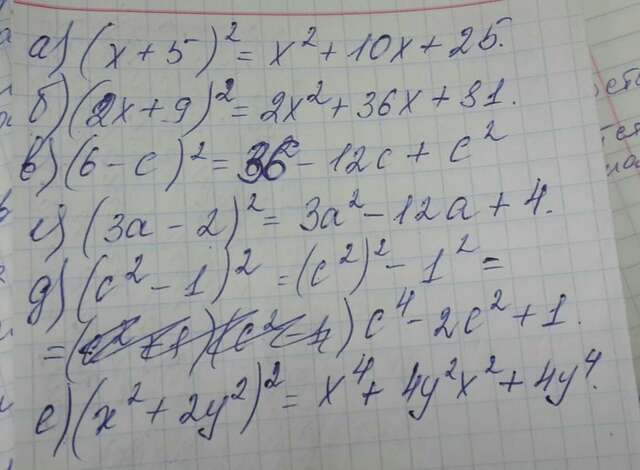 а) (x + 5)² = x² + 10x + 25.
б) (2x + 9)² = 2x² + 36x + 81.
в) (6 - c)² = 36 - 12c + c²
г) (3a - 2)² = 3a² - 12a + 4.
д) (c² - 1)² = (c²)² - 1² =
= c⁴ - 2c² + 1.
е) (x² + 2y²)² = x⁴ + 4y²x² + 4y⁴.